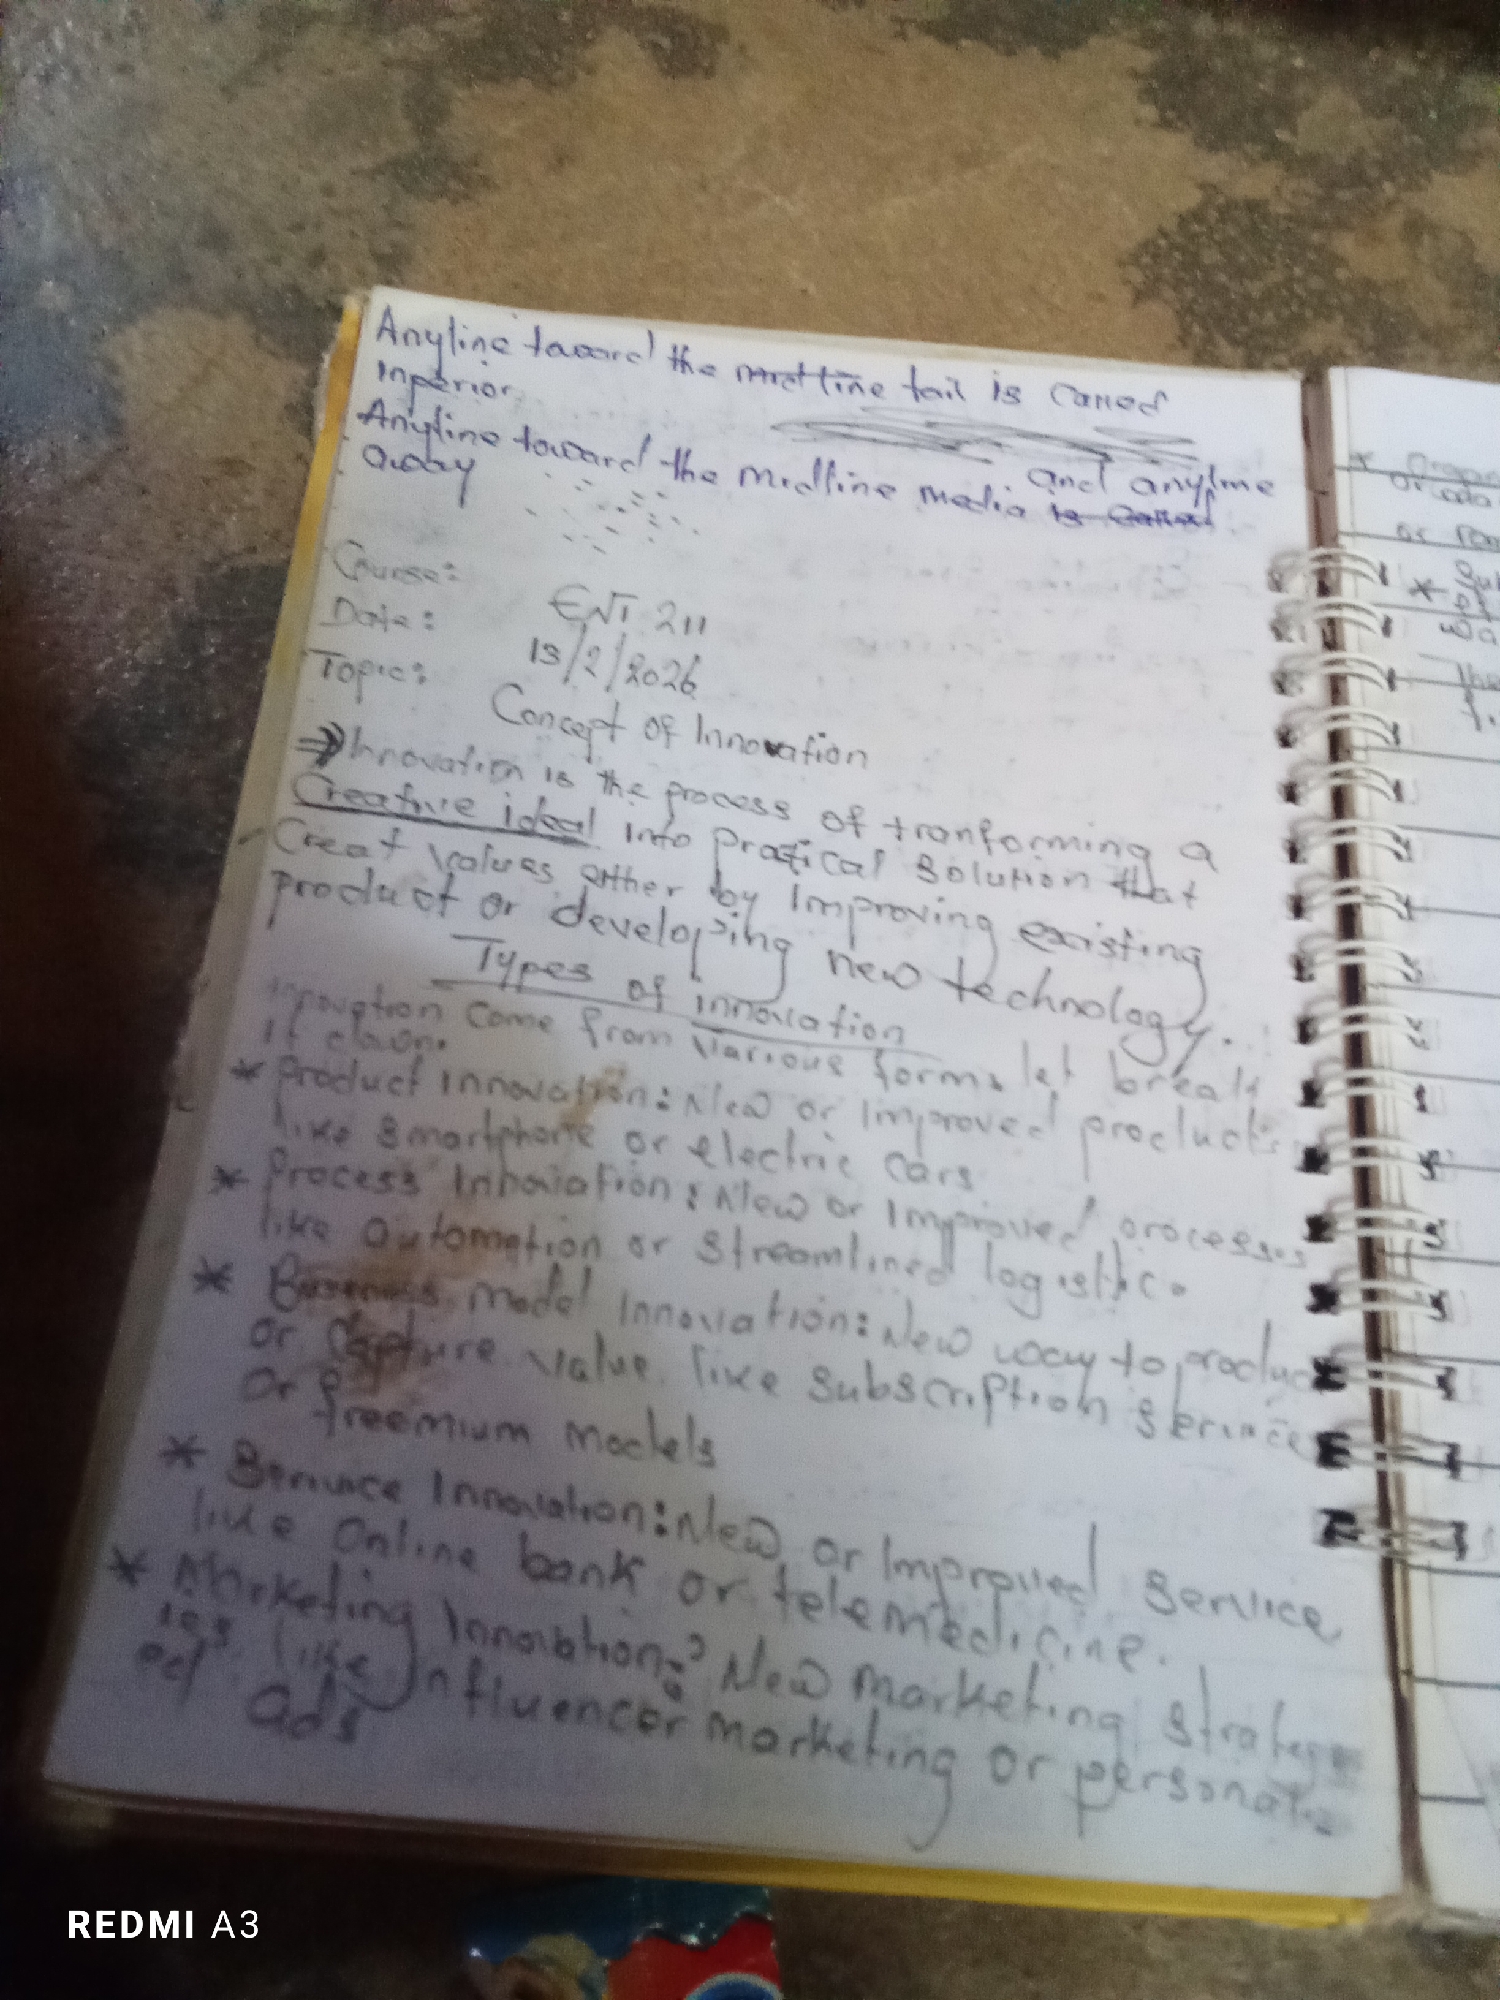 Anyline toward the midline tail is called
Inperior
Anyline toward the midline media is called and anyline
away
Course: ENT 211
Date: 13/2/2026
Topic: Concept of Innovation
⇒ Innovation is the process of tranforming a
Creative ideal into pratical solution that
- Creat values either by improving existing
product or developing new technology.
Types of innovation
Innovation come from various forms let break
it down.
* Product innovation: New or improved products
like smartphone or electric cars
* Process Innovation: New or improved processes
like automation or streamlined logistic.
* Business model innovation: New way to produce
or capture value like subscription service
or freemium models
* Service Innovation: New or improved service
like online bank or telemedicine.
* Marketing Innovation: New marketing strateg
ies like influencer marketing or personaliz
ed ads
REDMI A3